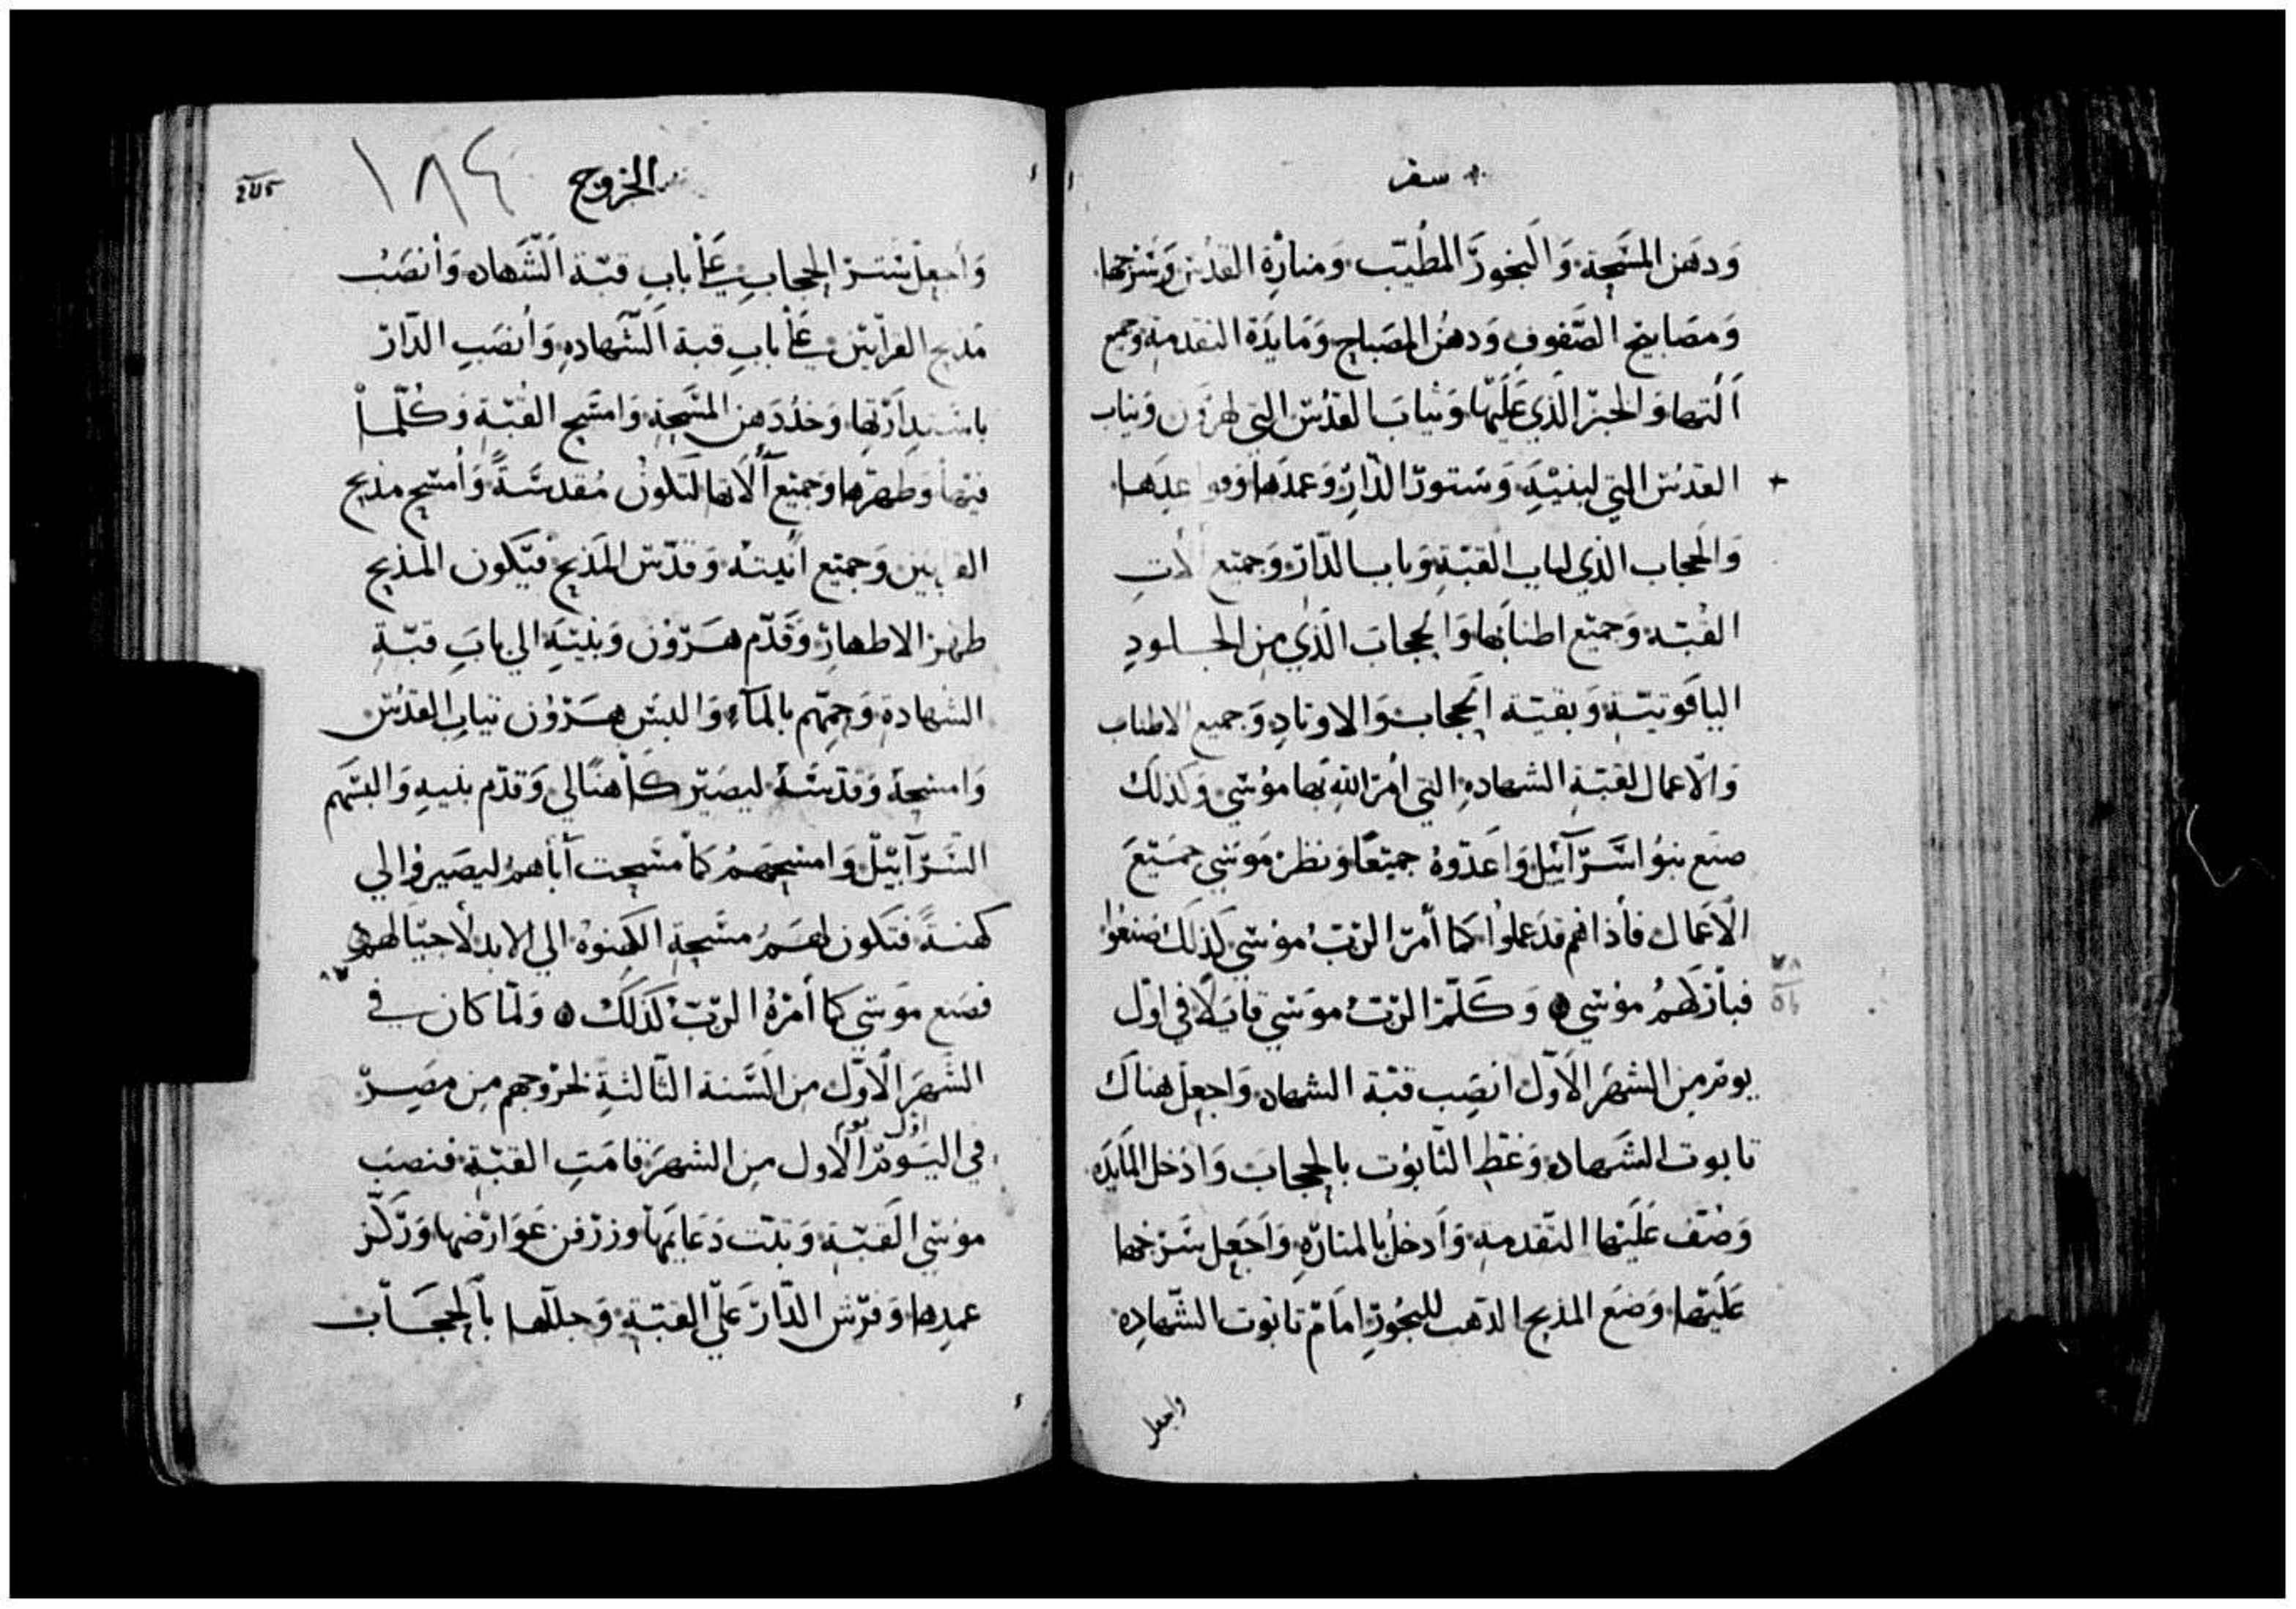 سفر
وَدهَن المسَحِة وَالبخورَ المطُيّب وَمنارَة القدُس وَسُرُجها
وَمصَابيح الصُّفوف وَدهنُ المصَباح وَمَايدَة التقدمة وجميع
اَلَتها وَالخبزَ الذَّي عَليَهّا وَثيابَ القدُس التي لهَرَون وَثياب
القدُس التي لبنيَهِ وَستورَ الدَّارِ وَعمَدها وَقواعدَها
وَالحجاب الذي لباب القبّة وَباب الدّار وَجميَع الات
القبَّة وَجميَع اطنابها وَالحجابَ الذَّي مِن الجلودِ
الياقوتيّة وَبقيَة الحجاب وَالاوتادِ وَجميع الاطناب
وَالاعمال لقبّة الشهادهِ التي اُمرَ اللهِ بها مُوسَي وَكذلَك
صنَع بنوُ اسَّرَآئيل وَاَعدّوهُ جميعًا وَنظرَ مَوسَي جمَيعَ
الَاعَمال فأذا هُم قدَ عملوُا كمَا أمَر الربّ مُوسَي كذلَكَ صنعوُا
فباَركهمُ مُوسَي ۞ وَكلَّمَ الربّ موَسَي قايلًا في اوّل
يومٍ مِن الشهرَ الَاوّل انصَب قبّة الشهاده وَاجعِل هناَك
تابوت الشَهاده وَغطِ التابوُت بالحجابَ وَادُخل المَايدَه
وَصُّف عَليَها التقدمة وَاَدخلُ بالمنارَهِ وَاَجَعل سَرَجها
عَليَها وَضَع المذبح الذهب للبخُورِ امَام تابوُت الشّهادهِ
واجعل
الخروج
١٨٤
وَاجعِل سَترَ الحجابِ عَلَي بابِ قبّة الَشّهاده وَأنصَب
مَذبح القرابَين عَلَي بابِ قبة الَشّهادهِ وَأنصَب الدّار
باسَتدِارَتها وَخدُ دَهن المسَحِة وَامسَح القبّة وَكُلّمَا
فيَها وَطهرّها وَجميَع آلاَتها لتَكونُ مُقدسَةً وَأمسَح مذبح
القرابَين وَجميَع انَيتهُ وَقدّس المَذبح فيَكون المذبح
طهرَ الاطهارَ وَقَدّم هَرَوُن وَبنيَهِ الي بابَ قبّة
الشهادة وَحِمّهم بالمَاَءِ وَالبسَ هَرَوُن ثيابِ القدُس
وَامسَحهُ وَقدّسَهُ ليصَيرَ كاَهنًا لي وَقدّم بنيهِ وَالبسَهم
السَرَآبيَل وَامسَحهمُ كَما مسَحت آبَآهمُ ليصَيروا لي
كهنةً فتَكون لهَمُ مسَحة الكهنَوةُ الي الابد لاَجيَالهم
فصَنع موَسَي كما أمَرهُ الربّ كذَلكَ ۞ وَلمّا كان في
الشَهرَ الَاوّل مِن الَسّنة الثّالثةِ لخرُوجهم مِن مصَرِ
في اليَومَ الَاول مِن الشهرَ قامَتِ القبّة فنصَب
اول يوم
موُسَي الَقبّة وَثبّت دَعَايمَها وزرفن عَوَارضَها وَرَكّز
عمدِها وَفرَش الدّار عَلي القبّة وَجللَها باَلحجَاب